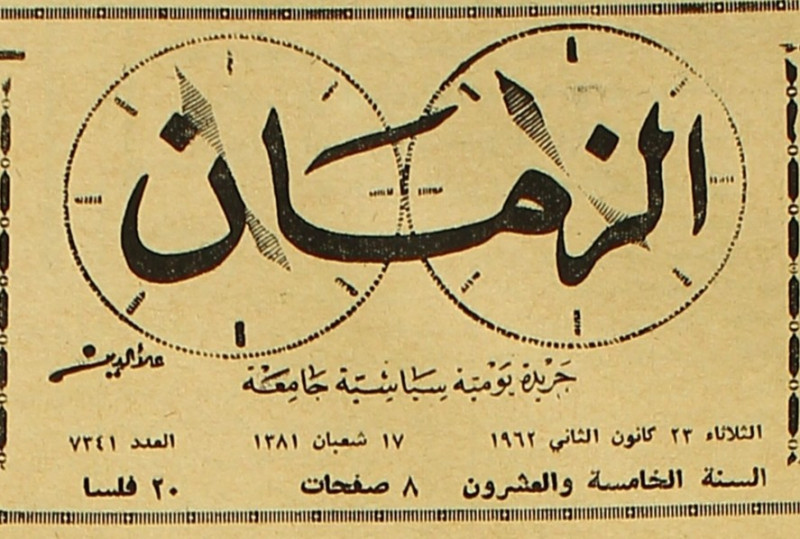 الزمان
علاء الدين
جريدة يومية سياسية جامعة
الثلاثاء ٢٣ كانون الثاني ١٩٦٢ ١٧ شعبان ١٣٨١ العدد ٧٣٤١
السنة الخامسة والعشرون ٨ صفحات ٢٠ فلسا